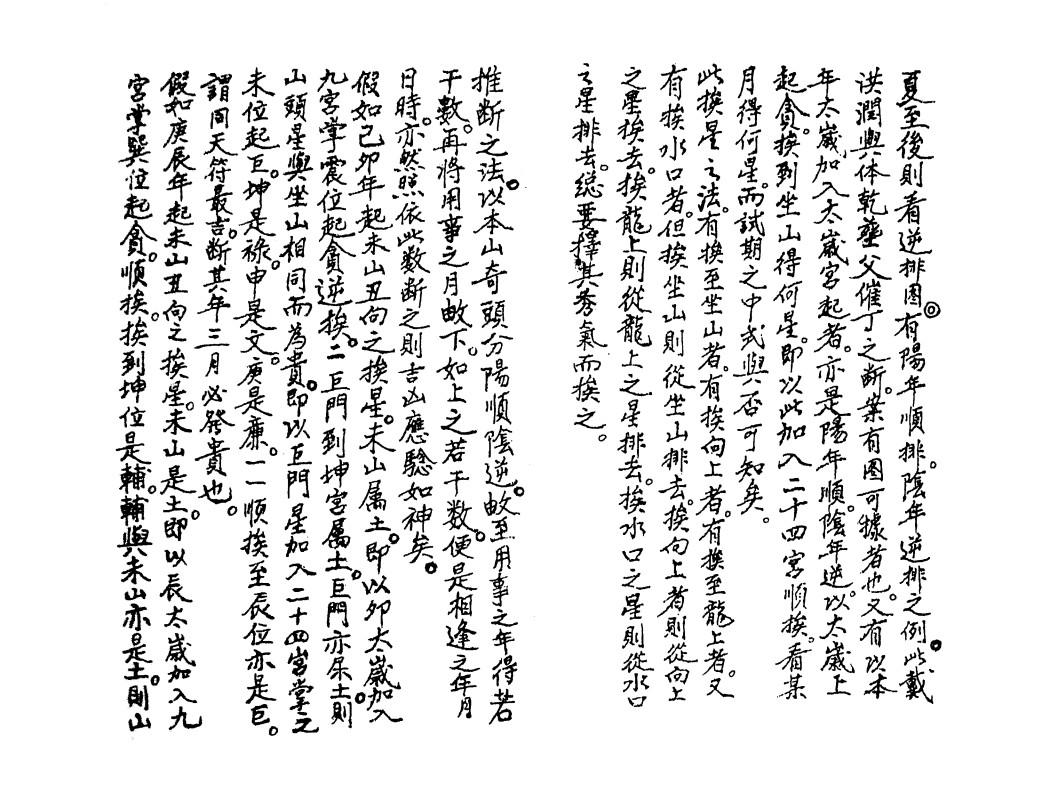 夏至後則看逆排图◎有陽年順排。陰年逆排之例。此戴
洪潤與体乾塟父催丁之断。業有图可據者也。又有以本
年太嵗加入太嵗宮起者。亦是陽年順。陰年逆。以太嵗上
起貪。挨到坐山得何星。即以此加入二十四宮順挨。看某
月得何星。而試期之中式與否可知矣。
此挨星之法。有挨至坐山者。有挨向上者。有挨至龍上者。又
有挨水口者。但挨坐山則從坐山排去。挨向上者則從向上
之星挨去。挨龍上則從龍上之星排去。挨水口之星則從水口
之星排去。総要擇其秀氣而挨之。
推断之法。以本山奇頭分陽順陰逆。㽗至用事之年得若
干數。再將用事之月㽗下。如上之若干數。便是相逢之年月
日時。亦然照依此数断之則吉凶應驗如神矣。
假如己卯年起未山丑向之挨星。未山属土。即以卯太嵗加入
九宮掌震位起貪逆挨。二巨門到坤宮属土。巨門亦屬土。則
山頭星與坐山相同而為貴。即以巨門星加入二十四宮掌之
未位起巨。坤是禄。申是文。庚是廉。一一順挨至辰位亦是巨。
謂同天符最吉。断其年三月必發貴也。
假如庚辰年起未山丑向之挨星。未山是土。即以辰太嵗加入九
宮掌巽位起貪。順挨。挨到坤位是輔。輔與未山亦是土。則山